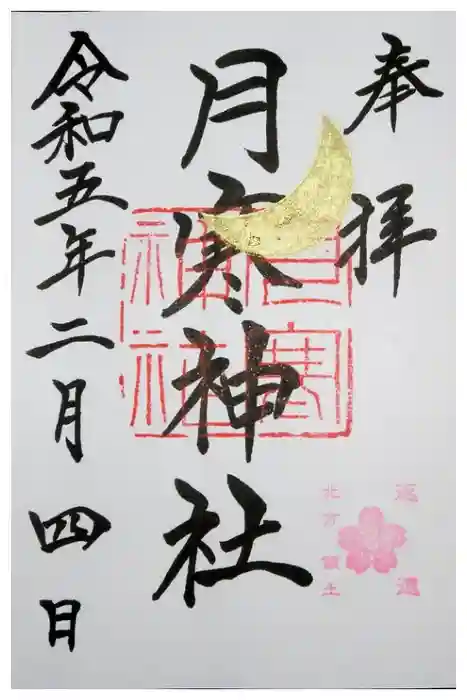 奉拝
月寒神社
月寒神社
北方領土
返還
令和五年二月四日